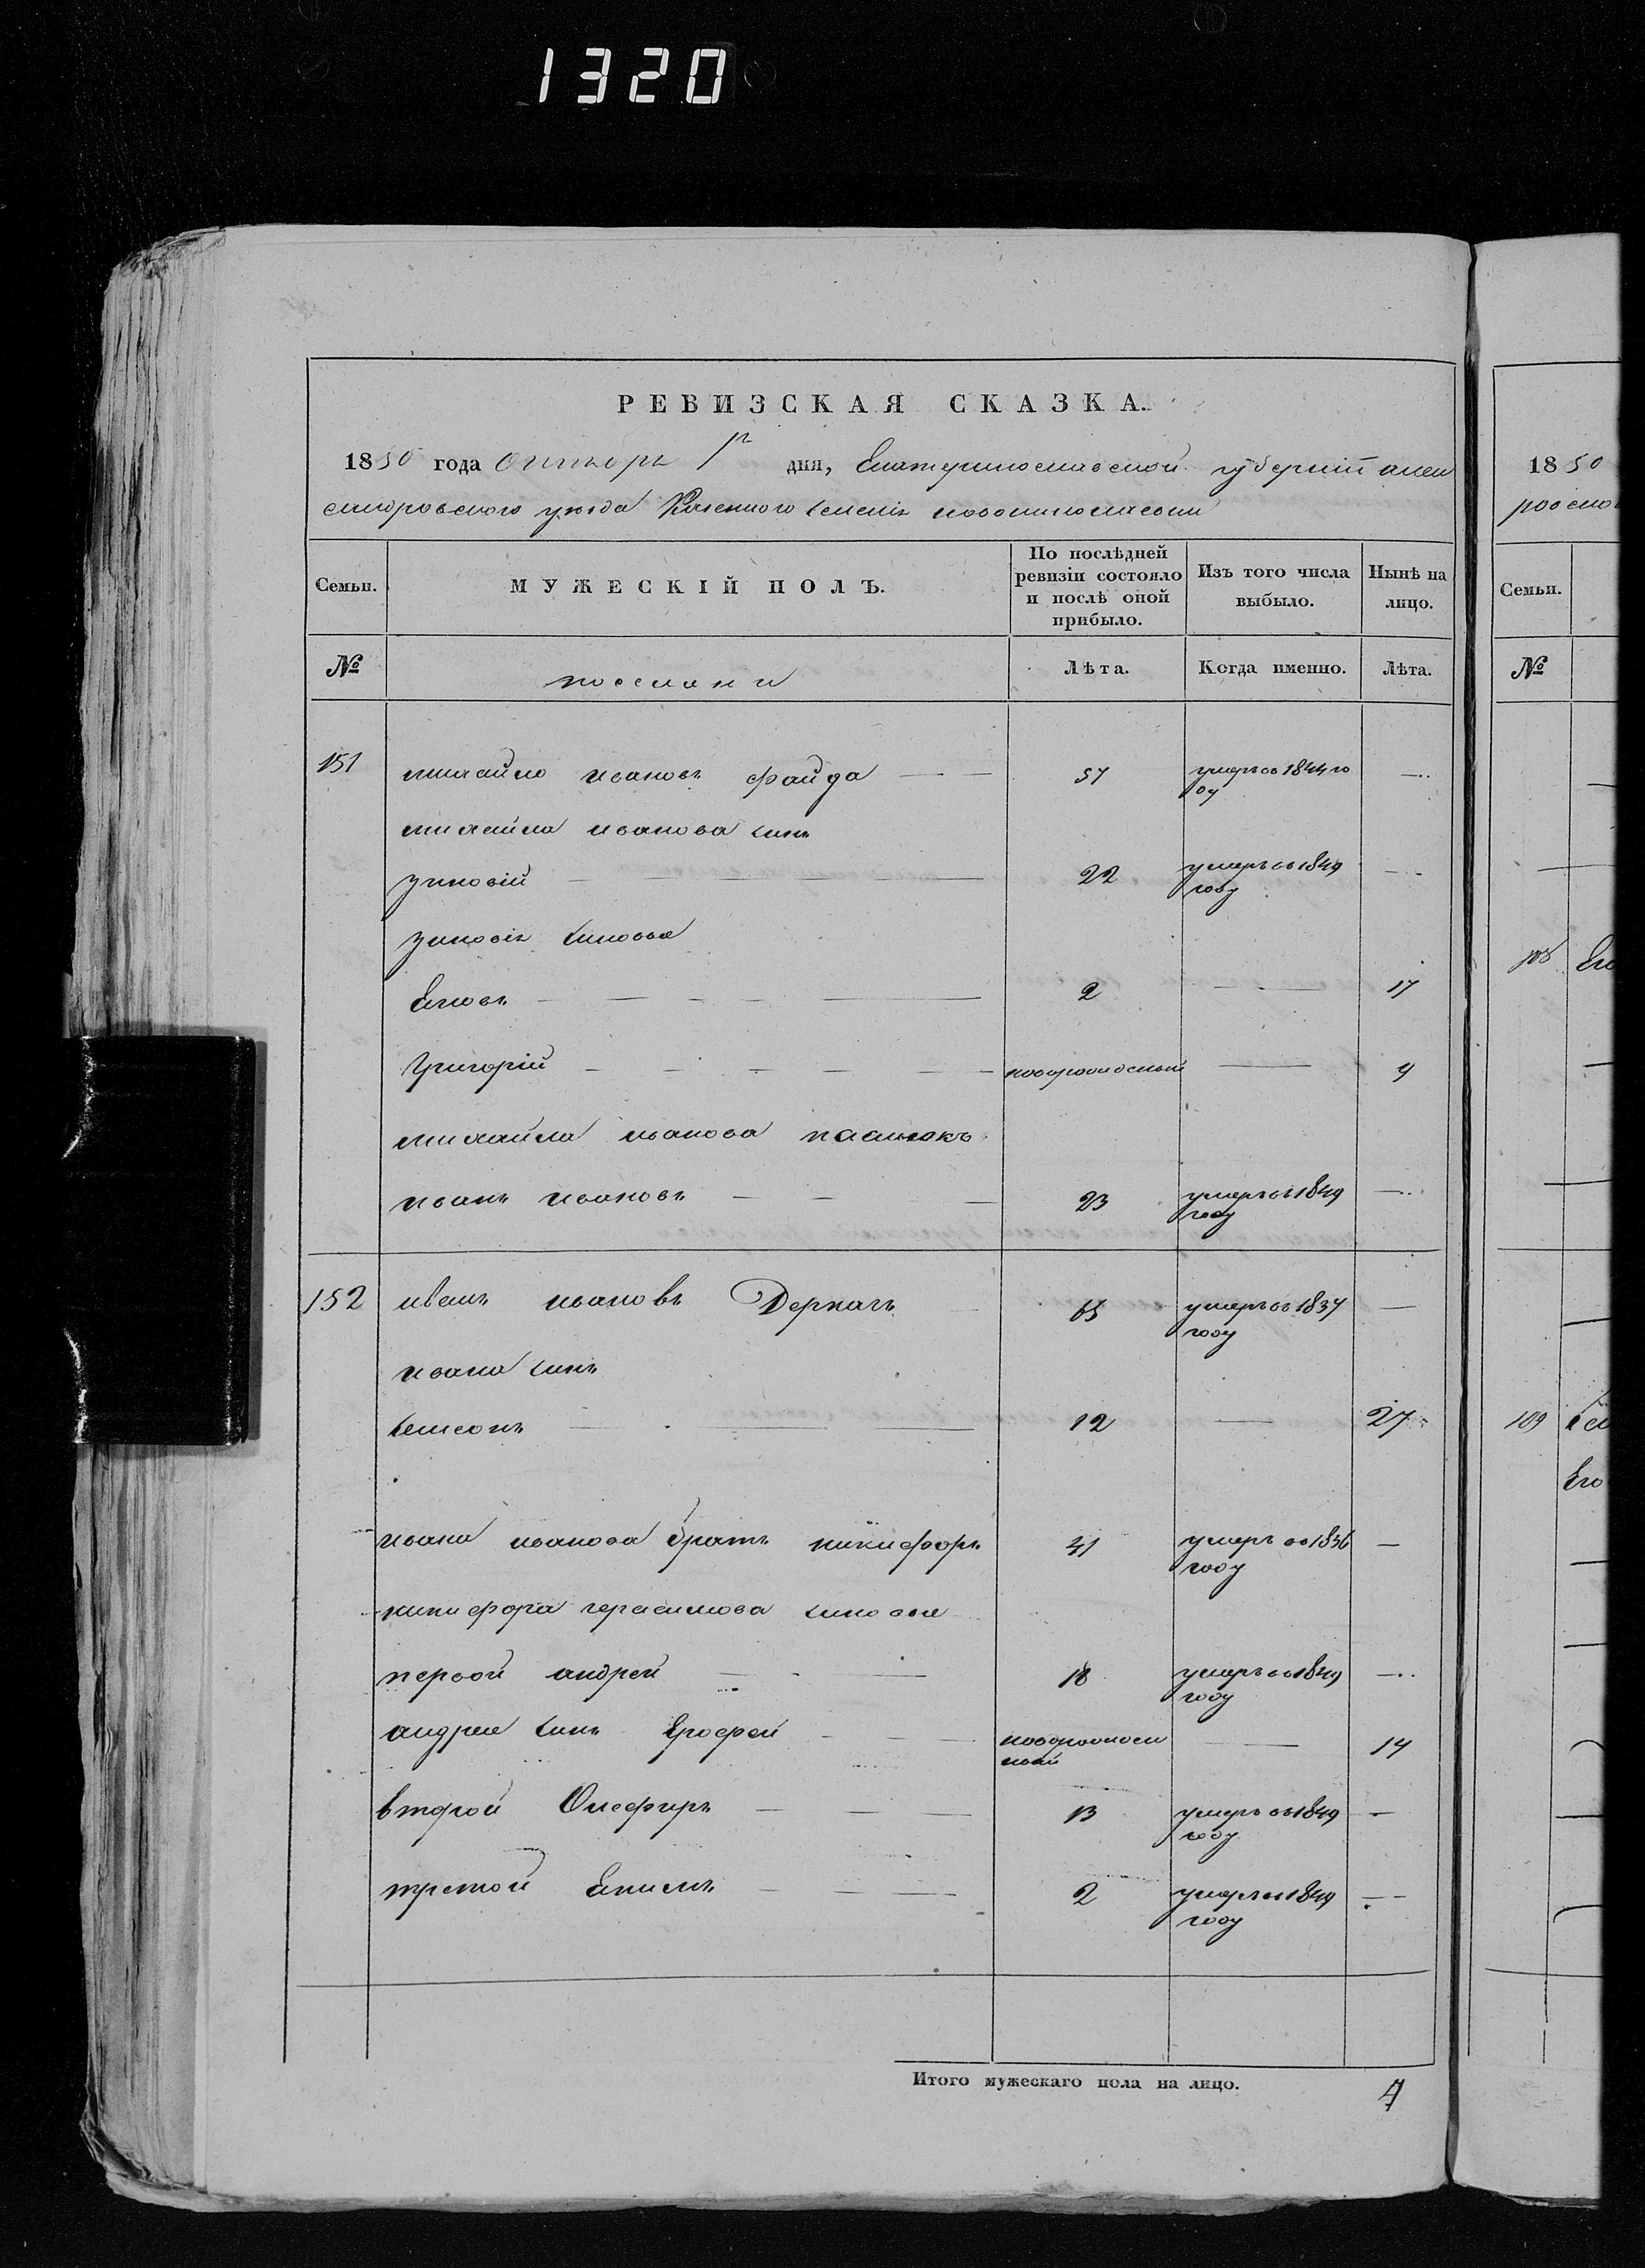 1320
РЕВИЗСКАЯ СКАЗКА.
1850 года Октября 1го дня, Екатеринославской губерніи алек
сандровского уезда Казенного селенія новониколаевки
Семьи. МУЖЕСКІЙ ПОЛЪ. По послѣдней ревизіи состояло и послѣ оной прибыло. Изъ того числа выбыло. Нынѣ на лицо.
№ поселяни Лѣта. Когда именно. Лѣта.
151 михайло ивановъ файда 57 умеръ въ 1844 го
ду
михайла иванова синъ
зиновій 22 умеръ въ 1849
году
зиновія синовья
Яковъ 2 17
Григорій новорожденый 9
михайла иванова пасинокъ
иванъ ивановъ 23 умеръ въ 1849
году
152 иванъ ивановъ Деркачъ 65 умеръ въ 1837
году
ивана синъ
семионъ 12 27
ивана иванова братъ никифоръ 41 умеръ въ 1836
году
никифора герасимова синовье
первой андрей 18 умеръ въ 1849
году
андрея синъ Ерофей новорожден
ный 14
второй Олефиръ 13 умеръ въ 1849
году
третой Екимъ 2 умеръ въ 1849
году
Итого мужескаго пола на лицо. 4
1850
Семьи.
№
108
109
Его